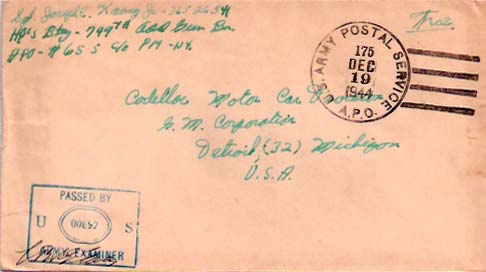 Sgt. Joseph C. Kaeng Jr. - 36526541
Free
Hq's Btry - 749th AAA Gun Bn.
APO - #655 c/o PM - NY.
U.S. ARMY POSTAL SERVICE
175
DEC
19
1944
A.P.O.
Codellac Motor Car Division
G.M. Corporation
Detroit, (32) Michigan
U.S.A.
PASSED BY
U 00852 S
ARMY EXAMINER